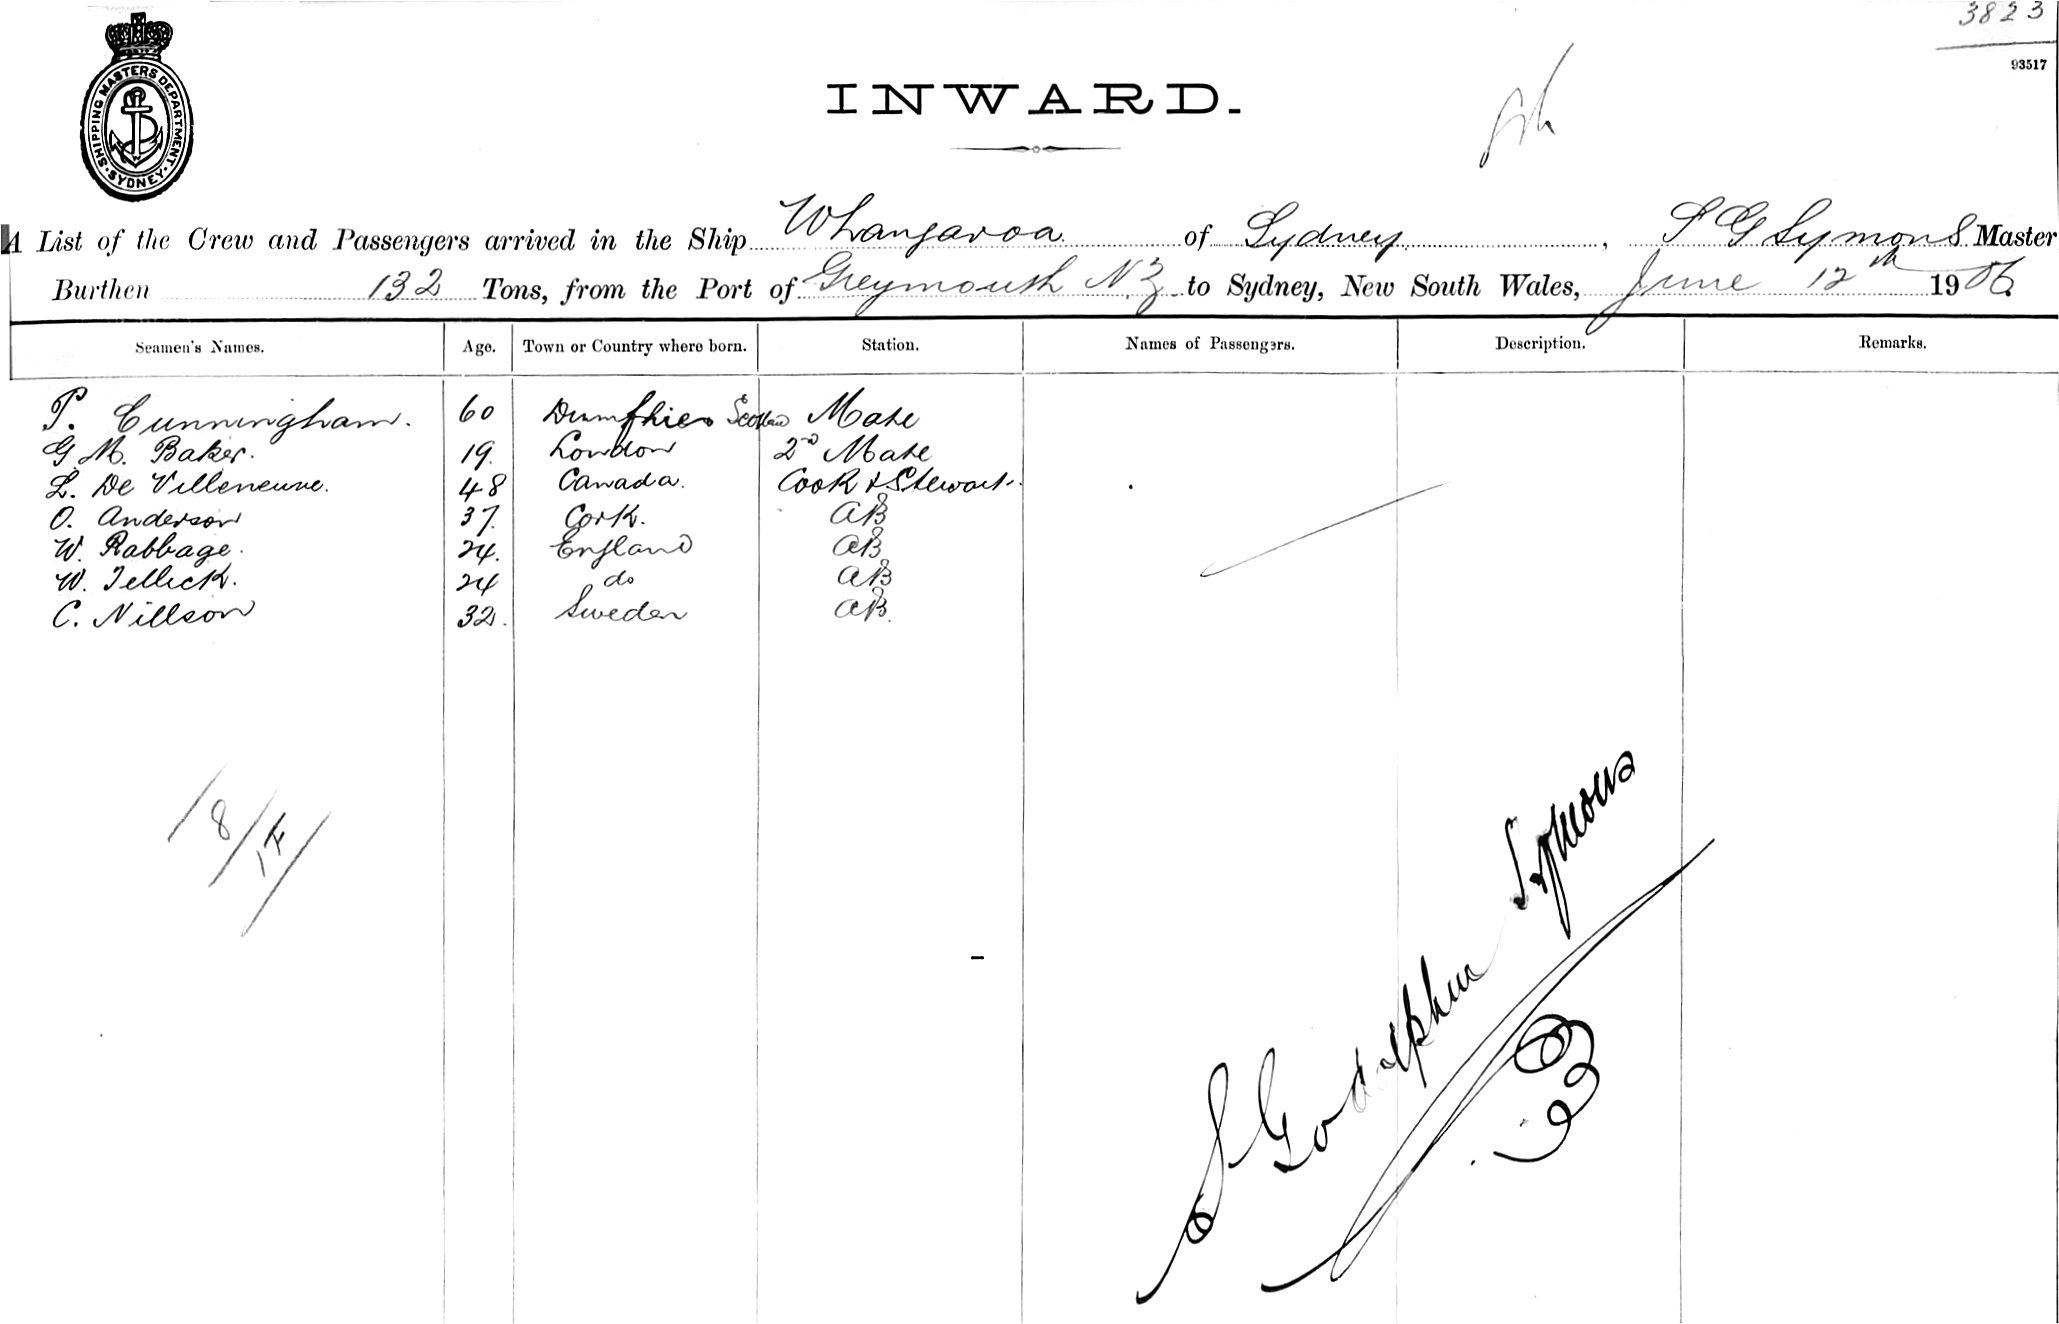 3823
93517
SHIPPING MASTERS DEPARTMENT. SYDNEY.
INWARD.
A List of the Crew and Passengers arrived in the Ship Whangaroa of Sydney, S G Symons Master
Burthen 132 Tons, from the Port of Greymouth N.Z to Sydney, New South Wales, June 12th 1906.
Seamen's Names. Age. Town or Country where born. Station. Names of Passengers. Description. Remarks.
P. Cunningham. 60 Dumfries Mate
G M. Baker. 19. London 2nd Mate
L. De Villeneuve. 48 Canada. Cook & Stewart.
O. Anderson 37. Cork. AB
W. Rabbage. 24. England AB
W. Tellick. 24 do AB
C. Nillson 32. Sweden AB.
8
S Godolphin Symons